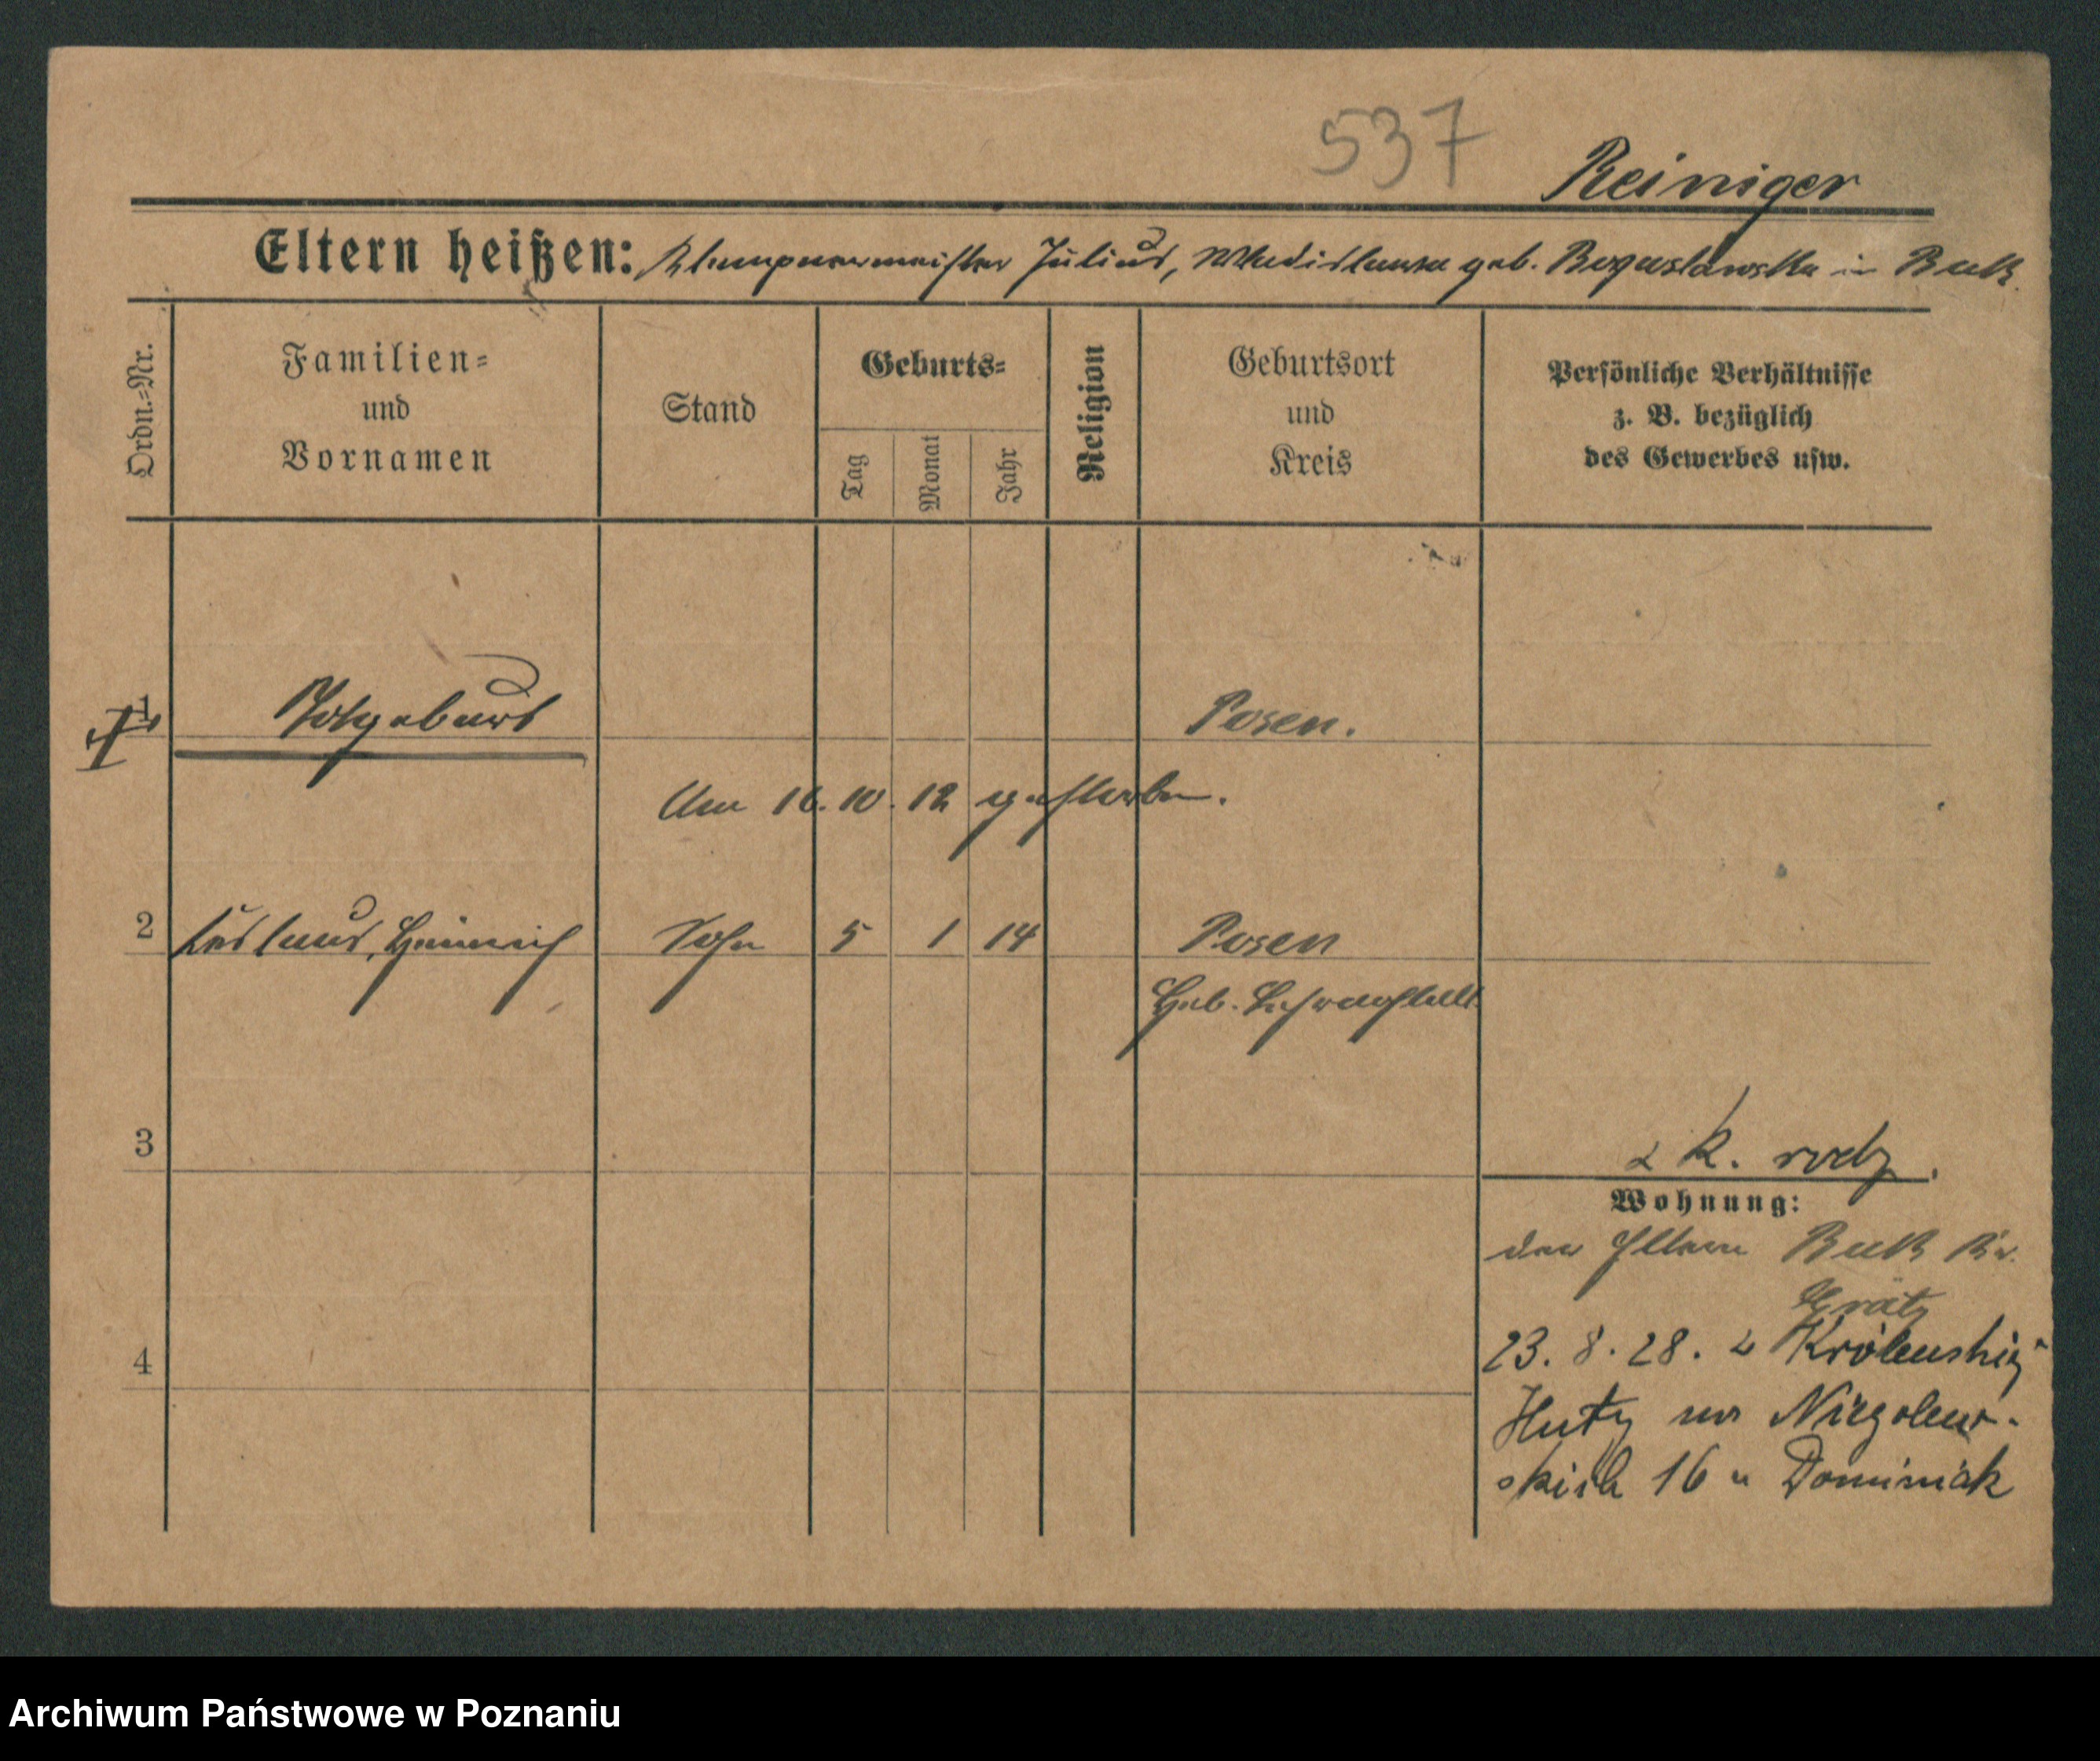 537
Reiniger
Eltern heißen: Klempnermeister Julius, Wladislawa geb. Bogusławska in Buk
Ordn.-Nr.
Familien-
und
Vornamen
Stand
Geburts-
Tag
Monat
Jahr
Religion
Geburtsort
und
Kreis
Persönliche Verhältnisse
z. B. bezüglich
des Gewerbes usw.
1 Totgeburt Posen.
Am 16. 10. 12 gestorben.
2 Heinrich Sohn 5 1 14 Posen
Heb. Lehranstalt
3
k. rodz.
Wohnung:
der Eltern Buk Kr.
Grätz
4
23. 8. 28. z Królewskiej
Huty
16 u Dominiak
Archiwum Państwowe w Poznaniu